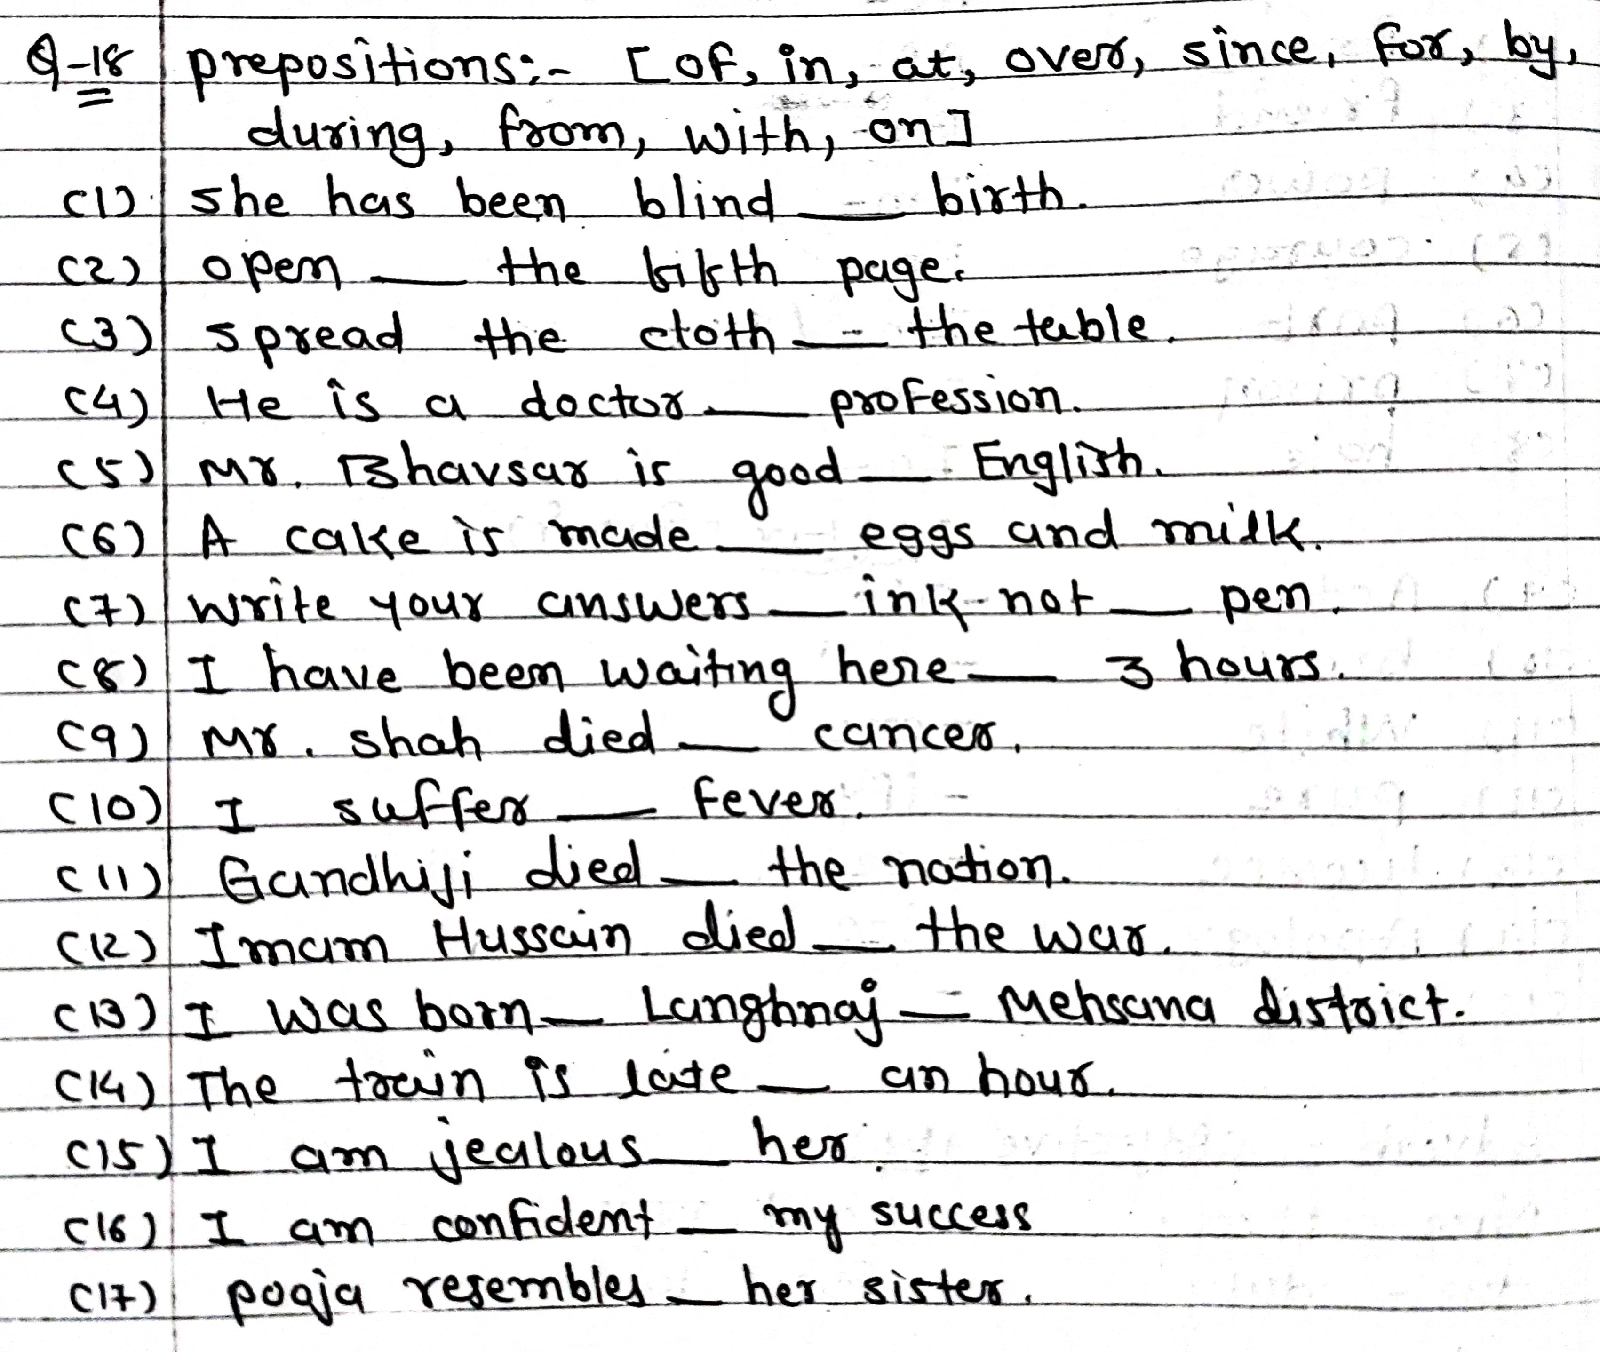 Q-18 prepositions:- [of, in, at, over, since, for, by,
during, from, with, on]
(1) she has been blind __ birth.
(2) open __ the fifth page.
(3) spread the cloth __ the table.
(4) He is a doctor __ profession.
(5) Mr. Bhavsar is good __ English.
(6) A cake is made __ eggs and milk.
(7) write your answers __ ink not __ pen.
(8) I have been waiting here __ 3 hours.
(9) Mr. shah died __ cancer.
(10) I suffer __ fever.
(11) Gandhiji died __ the nation.
(12) Imam Hussain died __ the war.
(13) I was born __ Langhnaj __ Mehsana district.
(14) The train is late __ an hour.
(15) I am jealous __ her.
(16) I am confident __ my success
(17) pooja resembles __ her sister.